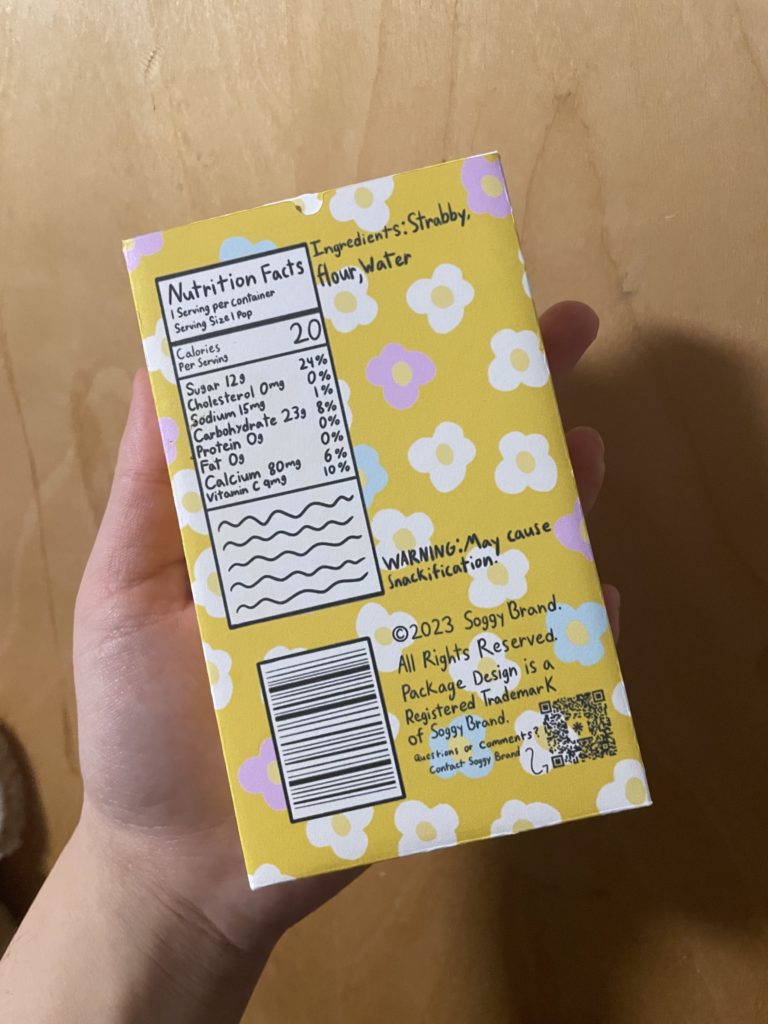 Nutrition Facts
1 Serving per container
Serving Size 1 Pop
Calories 20
Per Serving
Sugar 12g 24%
Cholesterol 0mg 0%
Sodium 15mg 1%
Carbohydrate 23g 8%
Protein 0g 0%
Fat 0g 0%
Calcium 80mg 6%
Vitamin C 9mg 10%
Ingredients: Strabby,
flour, Water
WARNING: May cause
Snackification!
©2023 Soggy Brand.
All Rights Reserved.
Package Design is a
Registered Trademark
of Soggy Brand.
Questions or Comments?
Contact Soggy Brand